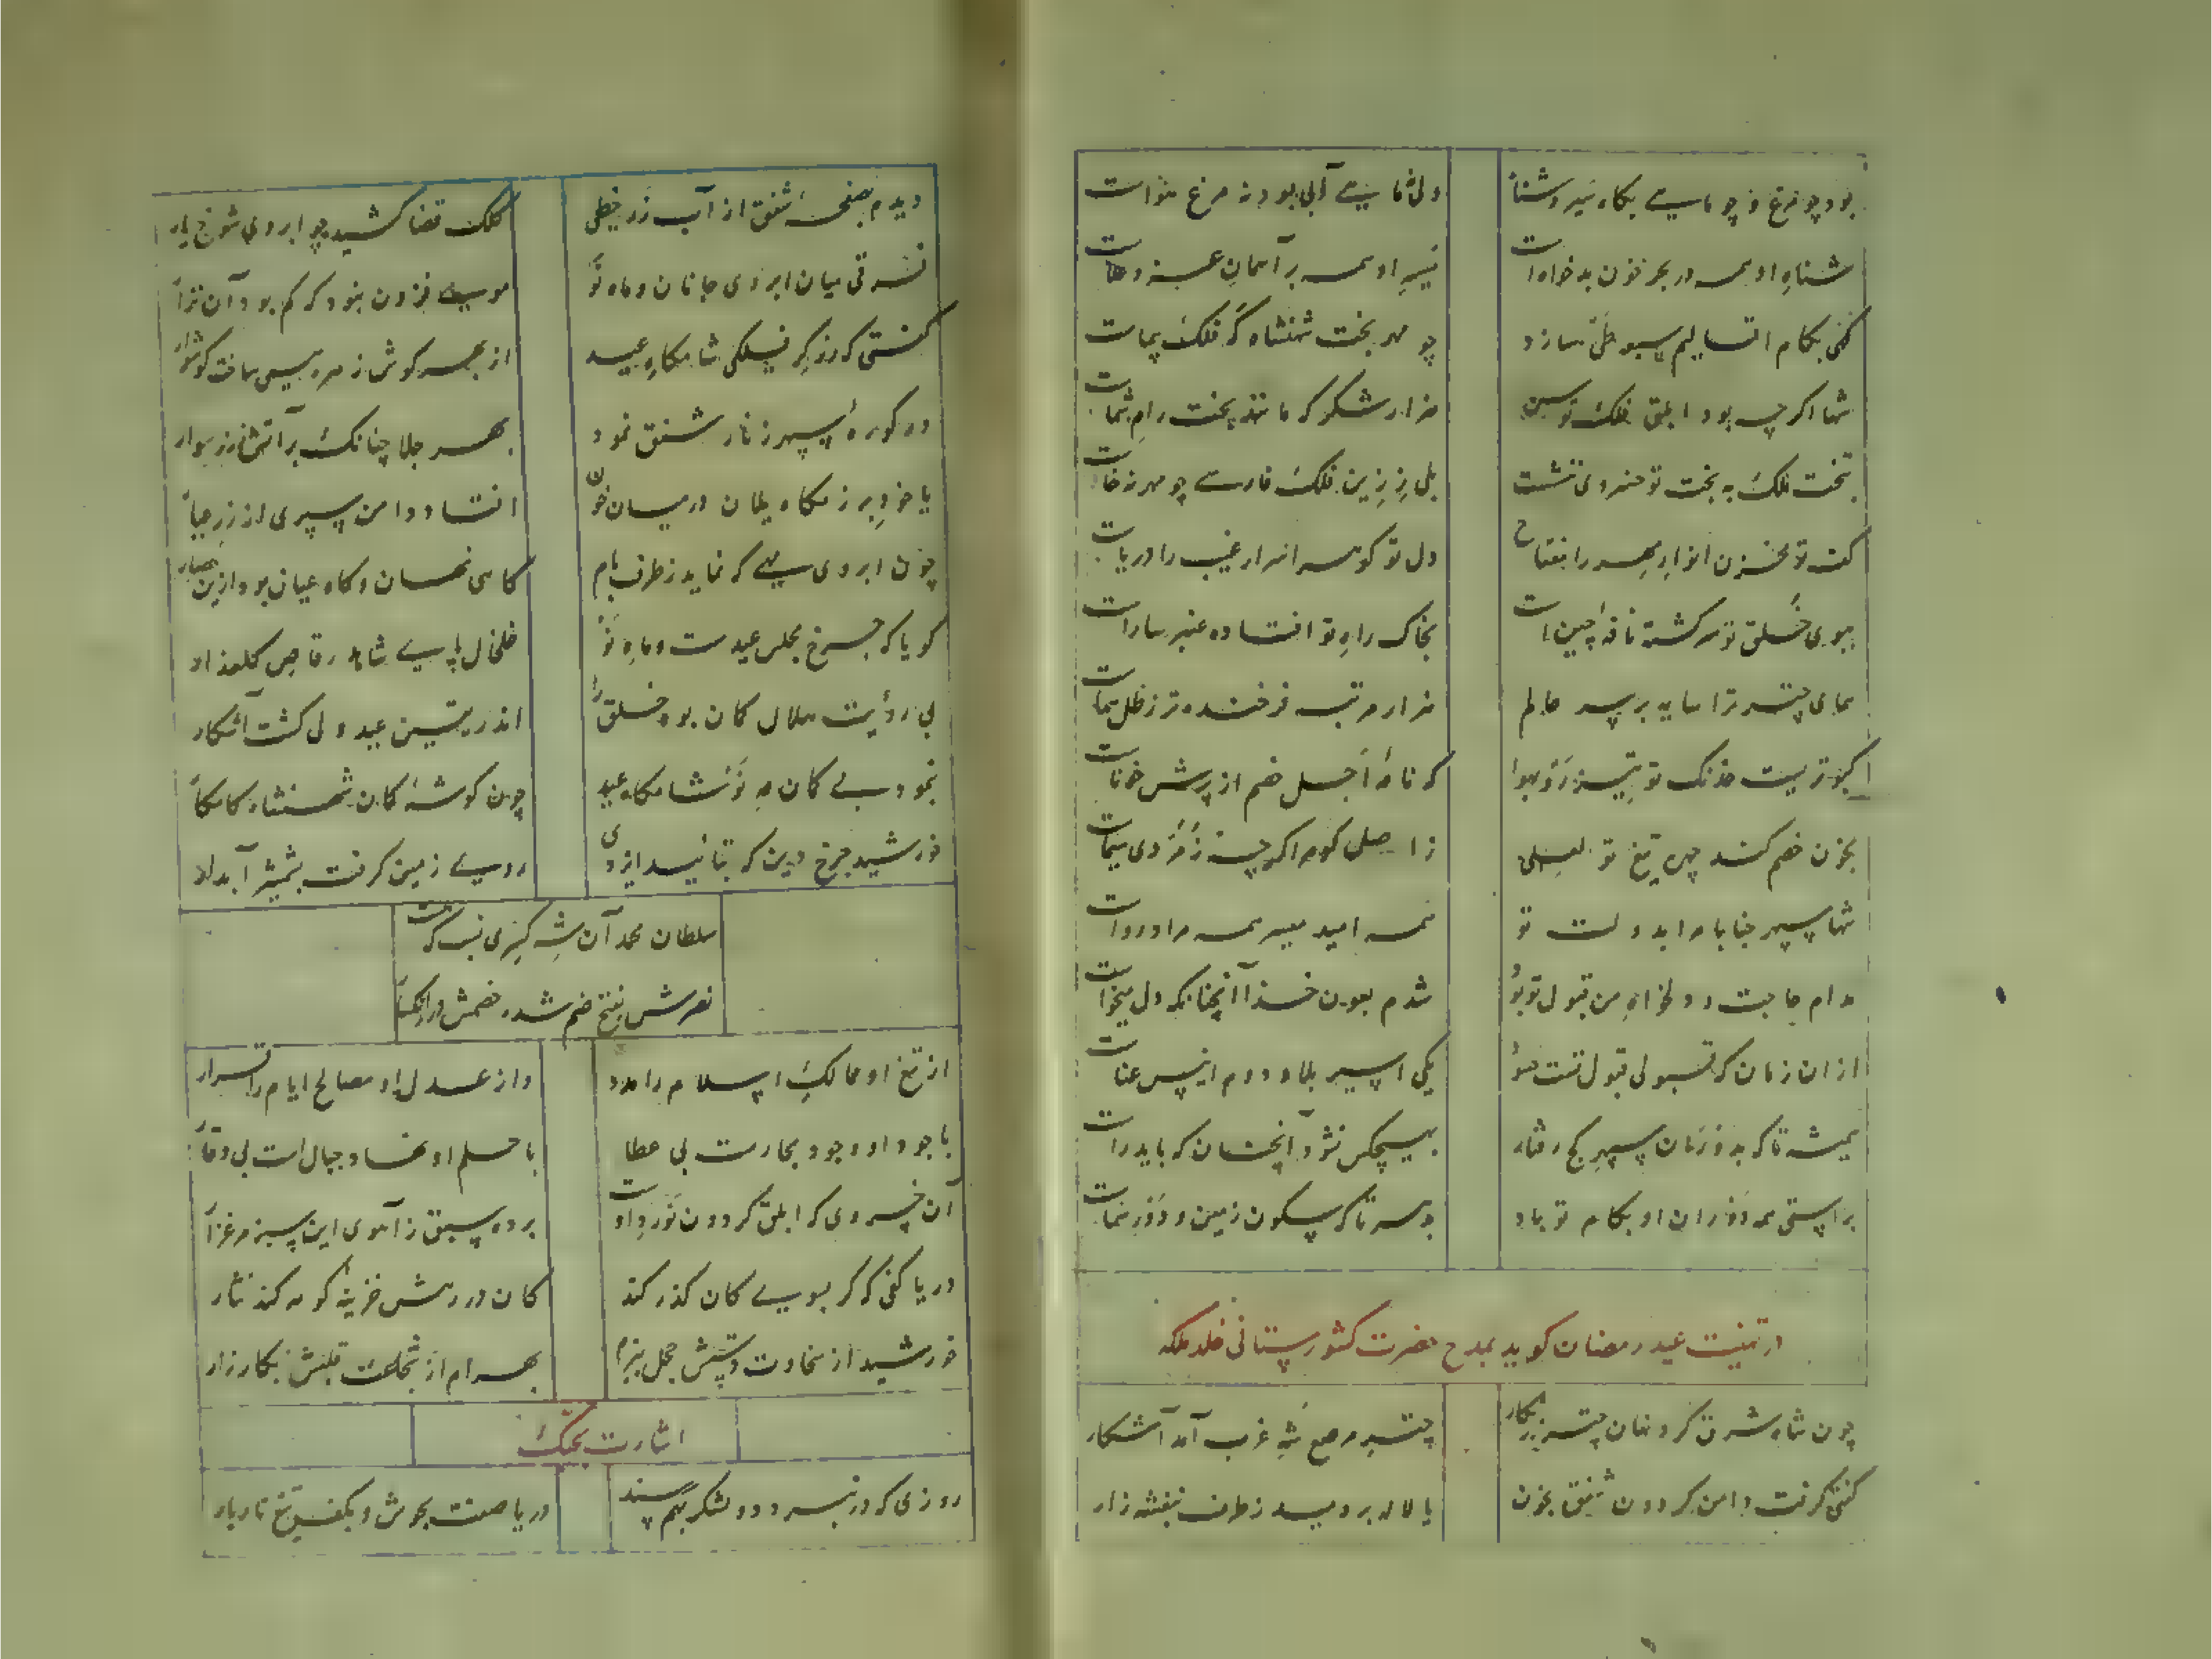 بود چو مرغ و چو ماهی بگاه سیر و شنا
ولی نه ماهی آبی بود نه مرغ هواست
شناه او همه در بحر خون بدخواه است
سیر او همه بر آسمان عز و علاست
کفی بکام اقالیم سبعه طی سازد
چو مهر بخت شهنشاه گر فلک پیماست
شها اگر چه بود ابلق فلک توسن
هزار شکر که مانند بخت رام شماست
بتخت ملک به بخت تو خسروی ننشست
بلی ز زین فلک فارسی چو مهر نخاست
کف تو مخزن انوار مهر را مفتاح
دل تو گوهر اسرار غیب را دریاست
ببوی خلق تو سرگشته نافه چین است
بخاک راه تو افتاده عنبر ساراست
همای چتر ترا سایه بر سر عالم
هزار مرتبه فرخنده تر ز ظل هماست
کبوتریست خدنگ تو تیز رو بهوا
که نامه اجل خصم از پرش خواناست
بخون خصم کند چهره تیغ تو لعلی
ز اصل گوهر اگر چه زمردی سیماست
شها سپهر جنابا مرا بدولت تو
همه امید میسر همه مراد رواست
مدام حاجت دولخواه من قبول تو بود
شدم بعون خدا آنچنانکه دل میخواست
ازان زمان که قبولی قبول تست هنوز
یکی اسیر بلا و دوم انیس عناست
همیشه تا که بدور زمان سپهر کج رفتار
بهیچکس نشود آنچنان که باید راست
براستی همه دوران او بکام تو باد
بدهر تا که سکون زمین و دور سماست
در تهنیت عید رمضان گوید بمدح حضرت کشورستانی خلد ملکه
چون شاه شرق کرد نهان چتر زرنگار
چتر مرصع شه غرب آمد آشکار
گفتی گرفت دامن گردون شفق بخون
یا لاله بردمید ز طرف بنفشه زار
دیدم بصفحه شفق از آب زر خطی
کلک قضا کشید چو ابروی شوخ یار
فرقی میان ابروی جانان و ماه نو
مویی فزون نبود که کم بود آن نزار
گفتی که زرگر فلکی شامگاه عید
از بهر گوش زهره همی ساخت گوشوار
در کوره سپهر ز نار شفق نمود
بهر جلا چنانک بر آتش نهد سوار
یا خود برزمگاه یلان در میان خون
افتاد دامن سپری از زر عیار
چون ابروی مهی که نماید ز طرف بام
گاهی نهان و گاه عیان بود ازین حصار
گویا که چرخ مجلس عیدست و ماه نو
خلخال پای شاهد رقاص گلعذار
بی رؤیت هلال گمان بود خلق را
اندر یقین عید ولی گشت آشکار
نمود بی گمان مه نو شامگاه عید
چون گوشه کمان شهنشاه کامکار
خورشید چرخ دین که بتایید ایزدی
روی زمین گرفت بشمشیر آبدار
سلطان محمد آن شه کسری نسب که هست
نصرش بفتح ضم شده خصمش در انکسار
از تیغ او ممالک اسلام را مدد
وز عدل او مصالح ایام را قرار
با جود او وجود بحارست بی عطا
با حلم او نهاد جبال است بی وقار
آن خسروی که ابلق گردون نورد او
برده سبق ز آهوی این سبز مرغزار
دریا کفی که گر بسوی کان گذر کند
کان در رهش خزینه گوهر کند نثار
خورشید از سخاوت دستش خجل ببزم
بهرام از شجاعت قلبش بکارزار
اشارت بجنگ
روزی که در نبرد دو لشکر بهم رسند
دریا صفت بجوش و بکف تیغ تابدار